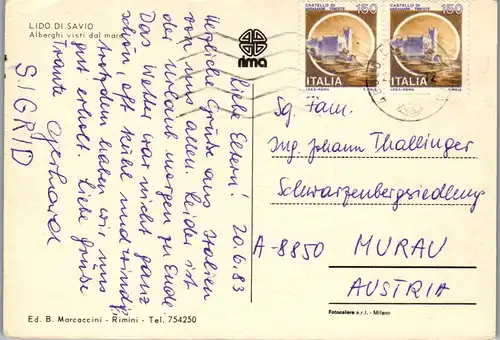 LIDO DI SAVIO
Alberghi visti dal mare
rima
150
CASTELLO DI
MIRAMARE TRIESTE
ITALIA
I.P.Z.S.-ROMA
150
CASTELLO DI
MIRAMARE TRIESTE
ITALIA
I.P.Z.S.-ROMA
20.6.83
Liebe Eltern!
Herzliche Grüsse aus Italien
von uns allen. Leider ist
der Urlaub morgen zu Ende.
Das Wetter war nicht ganz
schön, oft kühl und windig,
trotzdem haben wir uns
gut erholt. Liebe Grüsse
Traute Gerhard
SIGRID
Sg. Fam.
Ing. Johann Thallinger
Schwarzenbergsiedlung
A-8850 MURAU
AUSTRIA
Ed. B. Marcaccini - Rimini - Tel. 754250
Fotocelere s.r.l. - Milano